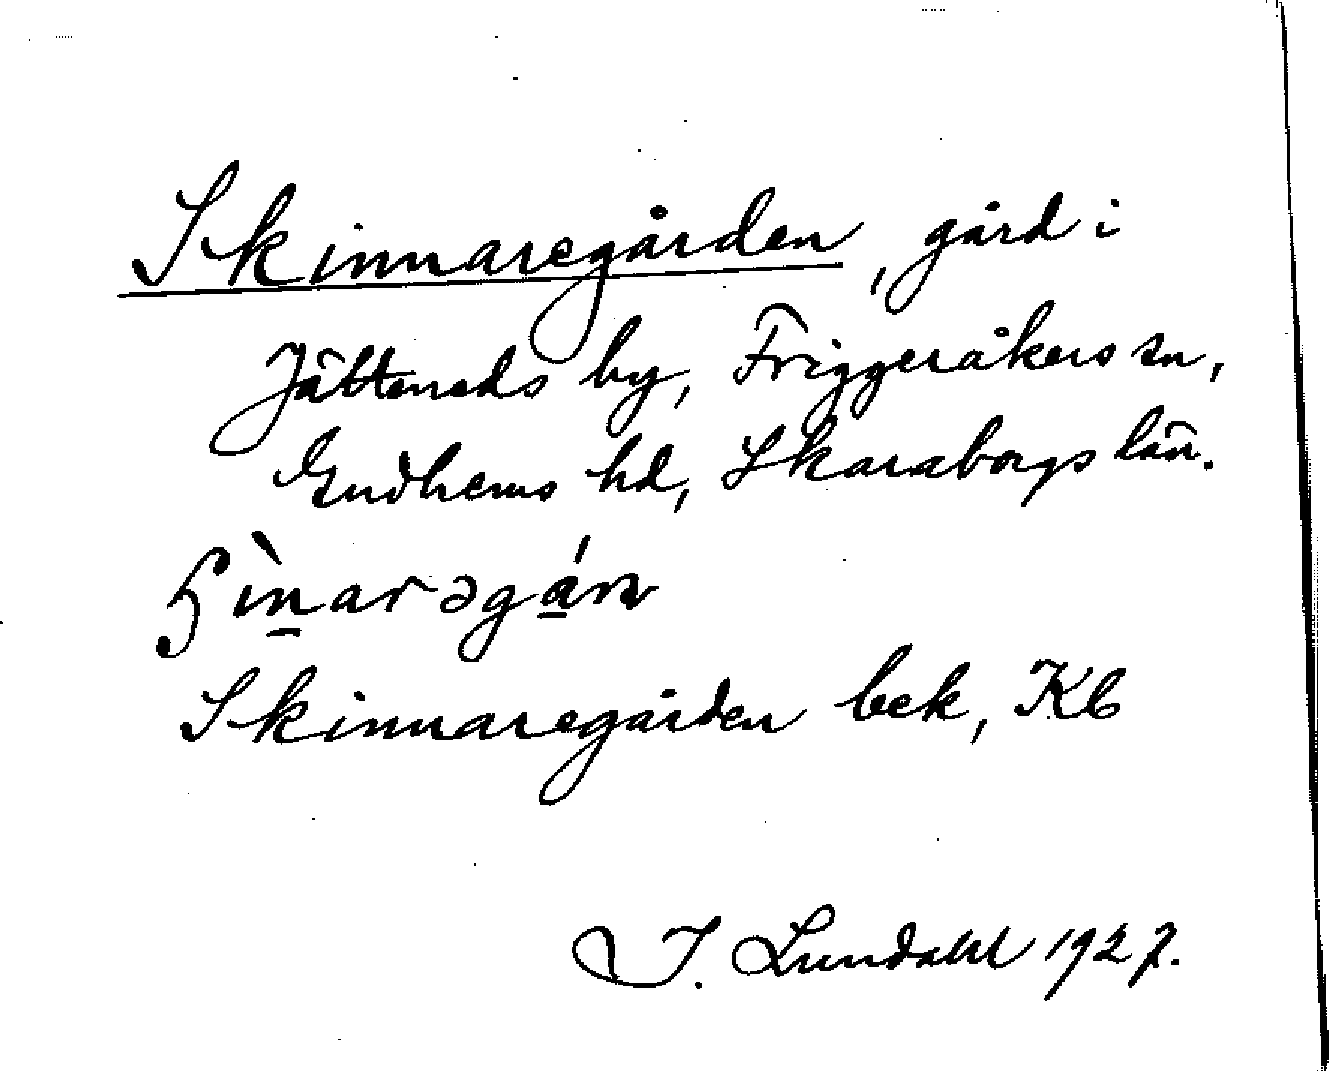 Skinnaregården, gård i
Jätteneds by, Friggeråkers sn,
Gudhems hd, Skaraborgs län.
Skinnaregården bek, Kb
I. Lundahl 1927.